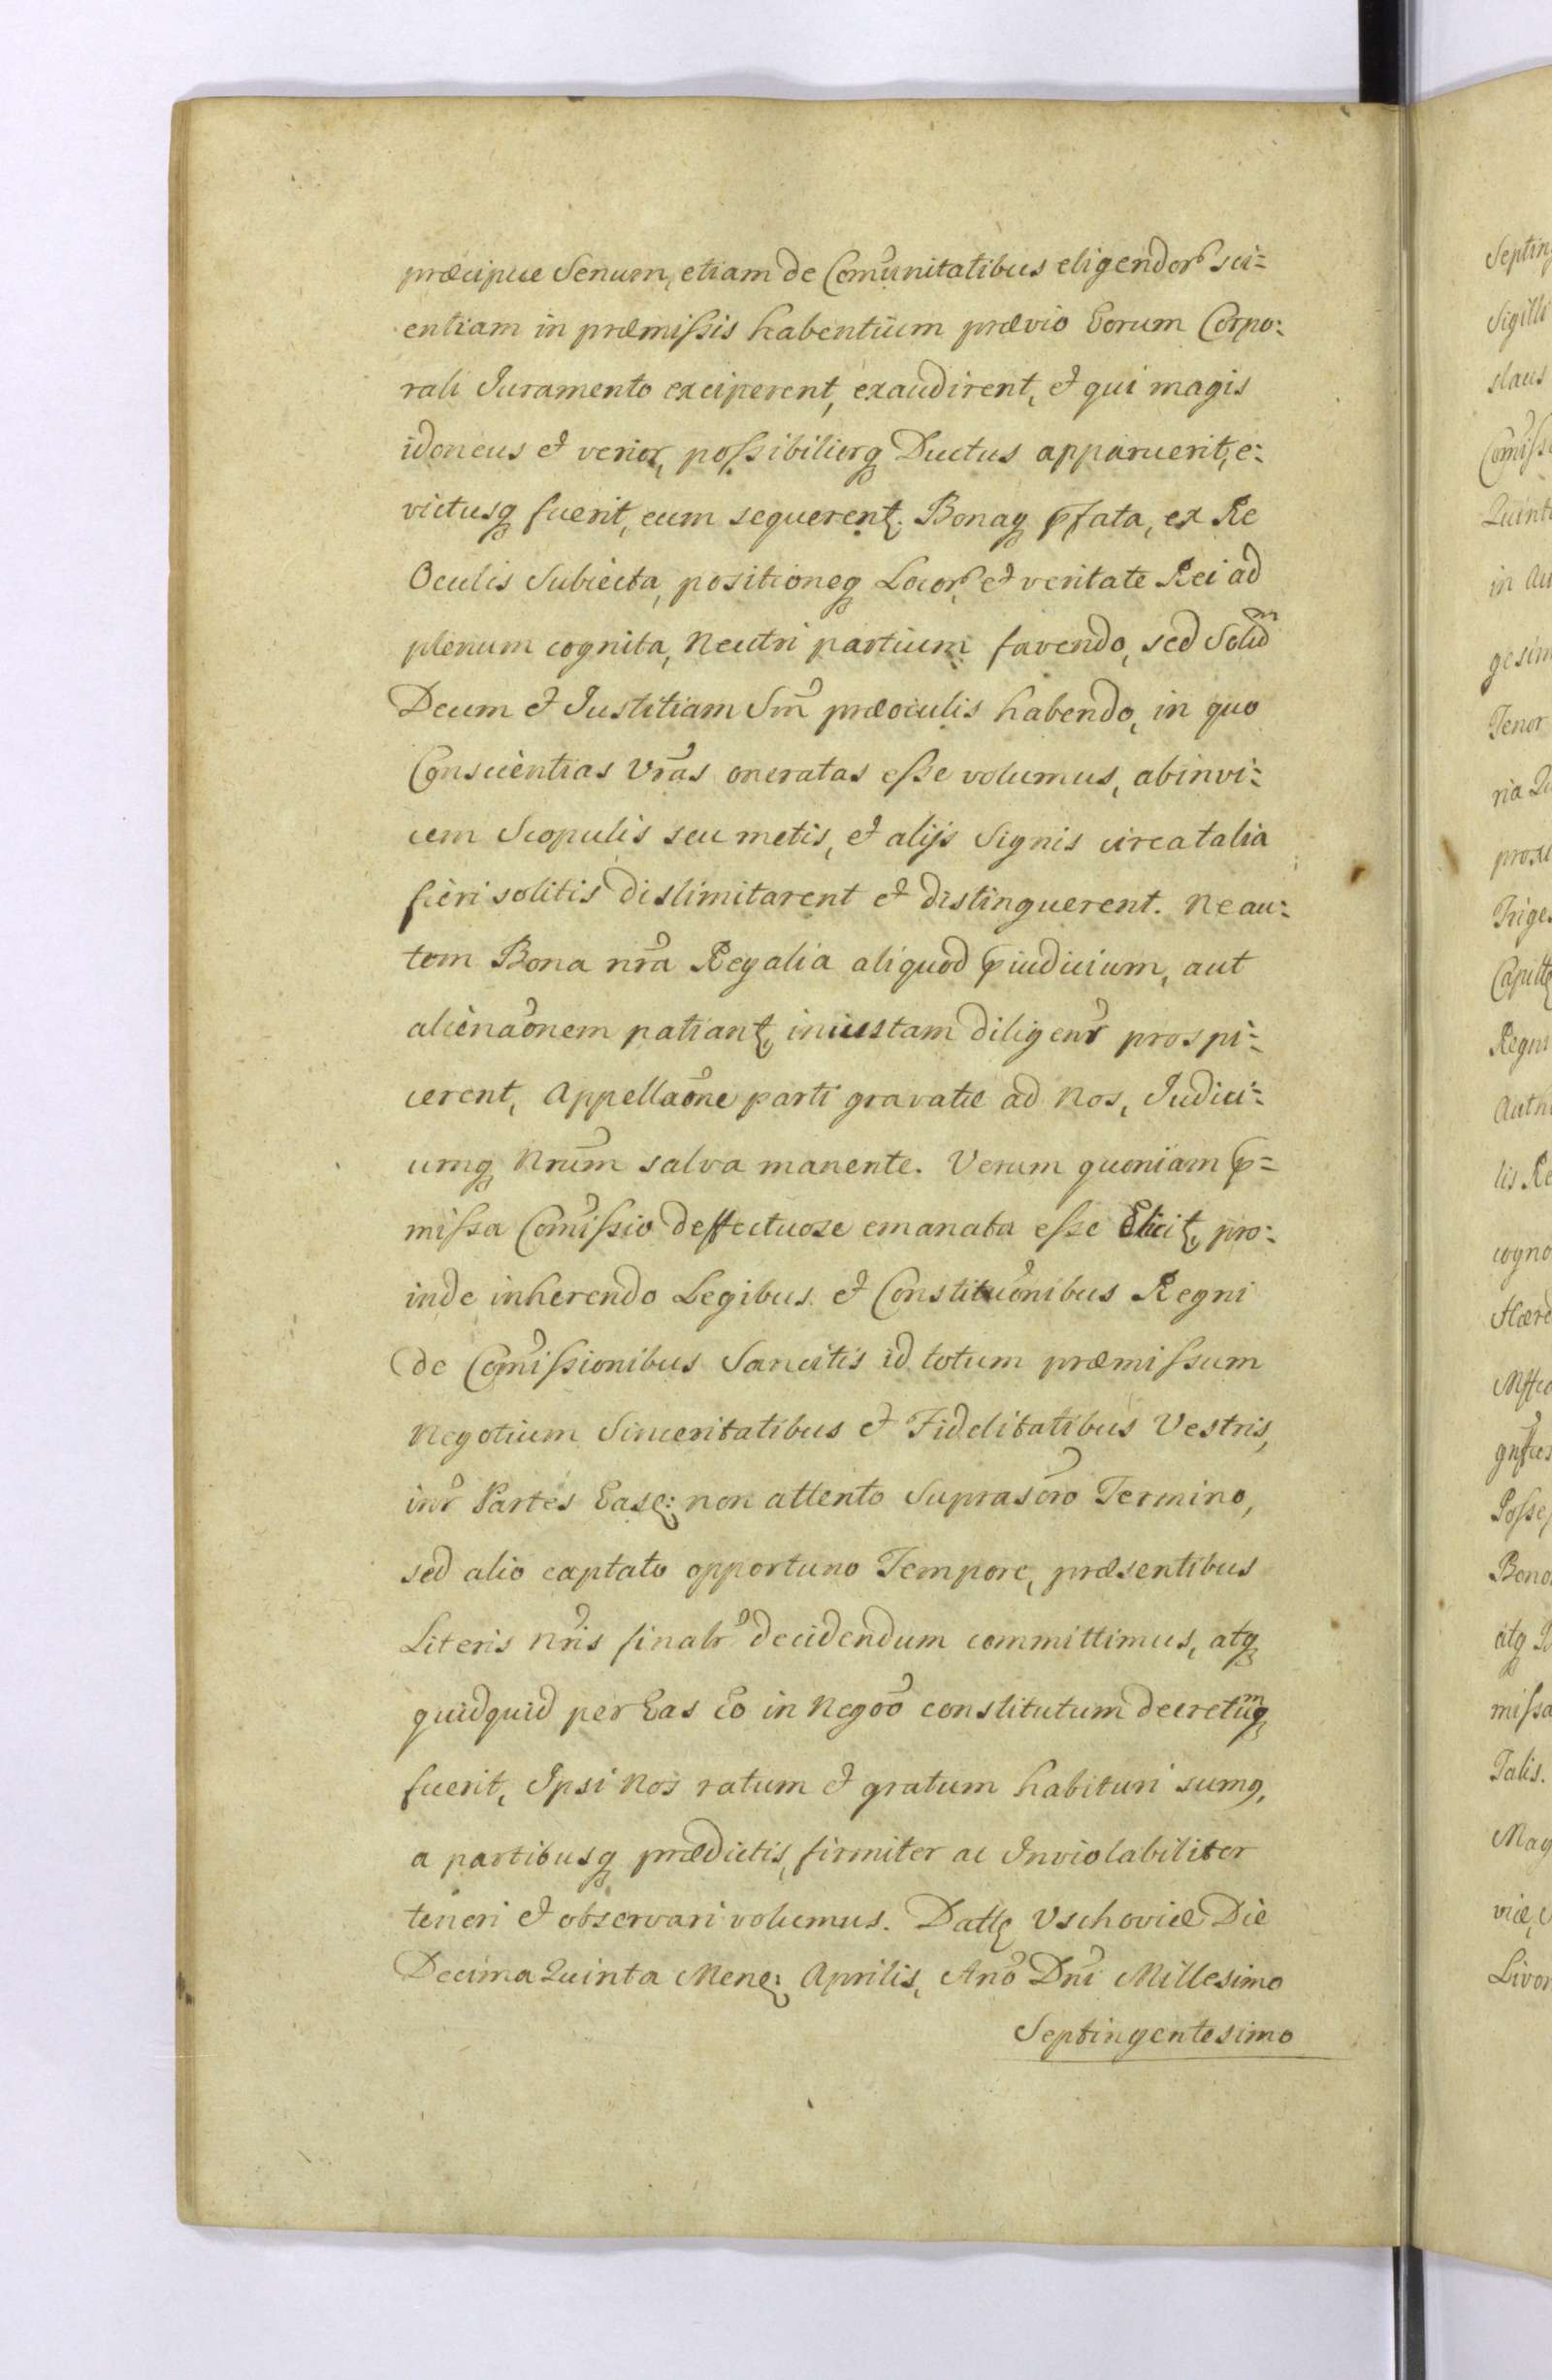 præcipue Senum, etiam de Com̃unitatibus eligendoꝝ sci=
entiam in præmiſsis habentium prævio Eorum Corpo:
rali Juramento exciperent, exaudirent, et qui magis
idoneus et verior, poſsibiliorqꝫ Ductus apparuerit, e:
victusqꝫ fuerit, eum sequerentꝭ. Bonaqꝫ p̱fata, ex Re
Oculis Subiecta, positioneqꝫ Locoꝝ, et veritate Rei ad
plenum cognita, Neutri partium favendo, sed Solũ
Deum et Justitiam Sm̃ præoculis habendo, in quo
Conscientias Vr̃as oneratas eſse volumus, abinvi=
cem Scopulis seu metis, et alijs Signis circa talia
fieri solitis dislimitarent et distinguerent. Ne au:
tem Bona nr̃a Regalia aliquod p̱iudicium, aut
alienãonem patiantꝭ, iniustam diligenr̃ prospi=
cerent, Appellãone parti gravatæ ad Nos, Judici=
umqꝫ Nrũm salva manente. Verum quoniam p̱=
miſsa Com̃iſsio deffectuose emanata eſse Elicitꝭ, pro:
inde inherendo Legibus et Constitũonibus Regni
de Com̃iſsionibus Sancitis id totum præmiſsum
Negotium Sinceritatibus et Fidelitatibus Vestris,
inr̃ Partes Easꝭ: non attento Suprascr̃o Termino,
sed alio captato opportuno Tempore, præsentibus
Literis nr̃is finalr̃ decidendum committimus, atqꝫ
quidquid per Eas Eo in Negõo constitutum decretumqꝫ
fuerit, Ipsi Nos ratum et gratum habituri sumꝯ,
a partibusqꝫ prædictis, firmiter ac Inviolabiliter
teneri et observari volumus. Dattꝭ Vschoviæ Die
Decima Quinta Menꝭ: Aprilis, Anõ Dñi Millesimo
Septingentesimo
Septin
Sigilli
slaus
Com̃iſs
Quint
in Au
gesim
Tenor
ria Qu
proxi
Trige
Capittꝭ
Regni
Auth
lis Re
cogno
Hæred
Mffco
gnf̃cus
Poſseſ
Bono
atqꝫ
miſsa
Talis.
Mag
viæ,
Livon